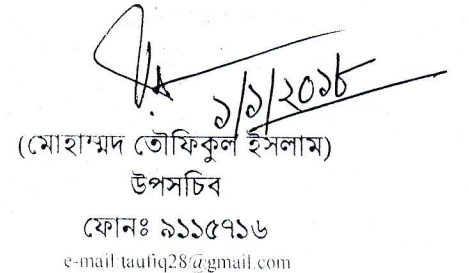 ১/১/২০১৮
(মোহাম্মদ তৌফিকুল ইসলাম)
উপসচিব
ফোনঃ ৯১১৫৭১৬
e-mail:taufiq28@gmail.com